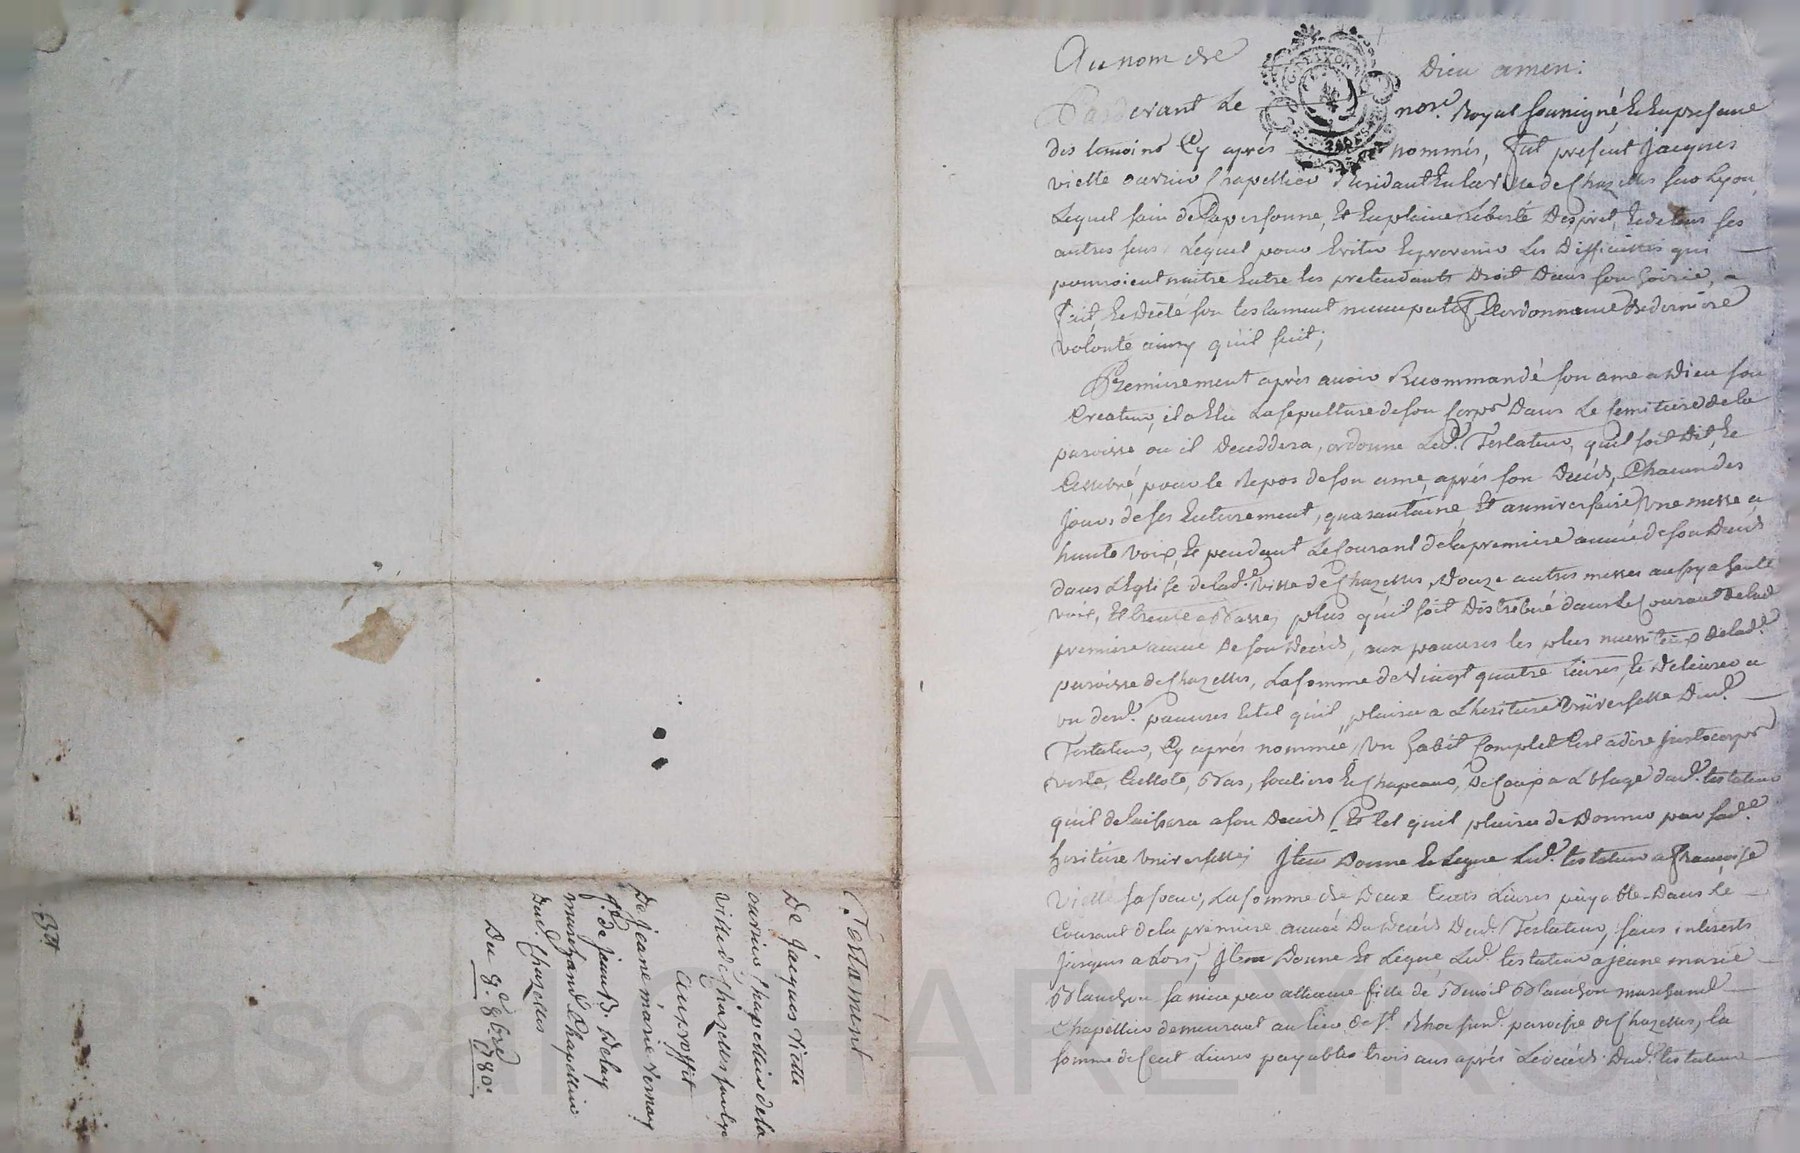 Au nom de Dieu amen:
Pardevant Le nore. Royal soussigné, et En presence
des temoins Cy aprés nommés, fut present Jacques
Viette ouvrier Chapellier residant En la Ville de Chazelles sur Lyon,
Lequel sain de sa personne, Et En plaine Liberté Desprit, Et de tous ses
autres sens Lequel pour Eviter Et prevenir Les Difficultés qui
pourroient naitre Entre les pretendants Droit Dans son hoirie, a
fait Et Dicté son testament nuncupatif, Et ordonnance De derniere
volonté ainsy qu'il suit;
Premierement aprés avoir Recommandé son ame a Dieu son
Createur, il a Elu La sepulture de son Corps Dans Le semitiere de la
paroisse ou il Deceddera, ordonne Led. Testateur, qu'il soit Dit, Et
Cellebré, pour le Repos de son ame, aprés son Decés, Chacun des
Jours de ses Enterrement, quarantaine Et anniversaire, une messe a
haute voix, Et pendant Le Courant de la premiere année de son Decés
dans L'Eglise de lad. Ville de Chazelles, Douze autres messes aussy a haute
voix, Et trente a Basse; plus qu'il soit Distribué dans Le Courant de lad.
premiere année De son Decés, aux pauvres les plus necessiteux de lad.
paroisse de Chazelles, La somme de Vingt quatre Livres, Et Delivrer a
un desd. pauvres Et tel qu'il plaira a L'heritiere Universelle Dud.
Testateur, Cy aprés nommée, un habit Complet C'est a dire Justocorps
veste, Cullote, Bas, souliers Et Chapeaux, De Ceux a L'usage dud. testateur
qu'il delaissera a son Decés, Et tel qu'il plaira de Donner par sad.
heritiere Universelle; Item Donne Et Legue Led. testateur a Françoise
Viette sa soeur, La somme de Deux Cents Livres payable Dans le
Courant de la premiere année Du Decés Dud. Testateur, sans interests
jusques alors, Item Donne Et Legue Led. testateur a jeanne marie
Blanchon sa niece par alliance fille de Benoit Blanchon marchand
Chapellier demeurant au lieu de St. paroisse de Chazelles, la
somme de Cent Livres payables trois ans aprés Le decés Dud. testateur
Testament
De Jacques Viette
ouvrier Chapellier de la
ville de Chazelles sur Lyon
au proffit
De jeane marie Vernay
fe. de jean B. Delay
marchand Chapellier
dud. Chazelles
Du 8e. 8bre 1780.
Pascal CHAREYRON